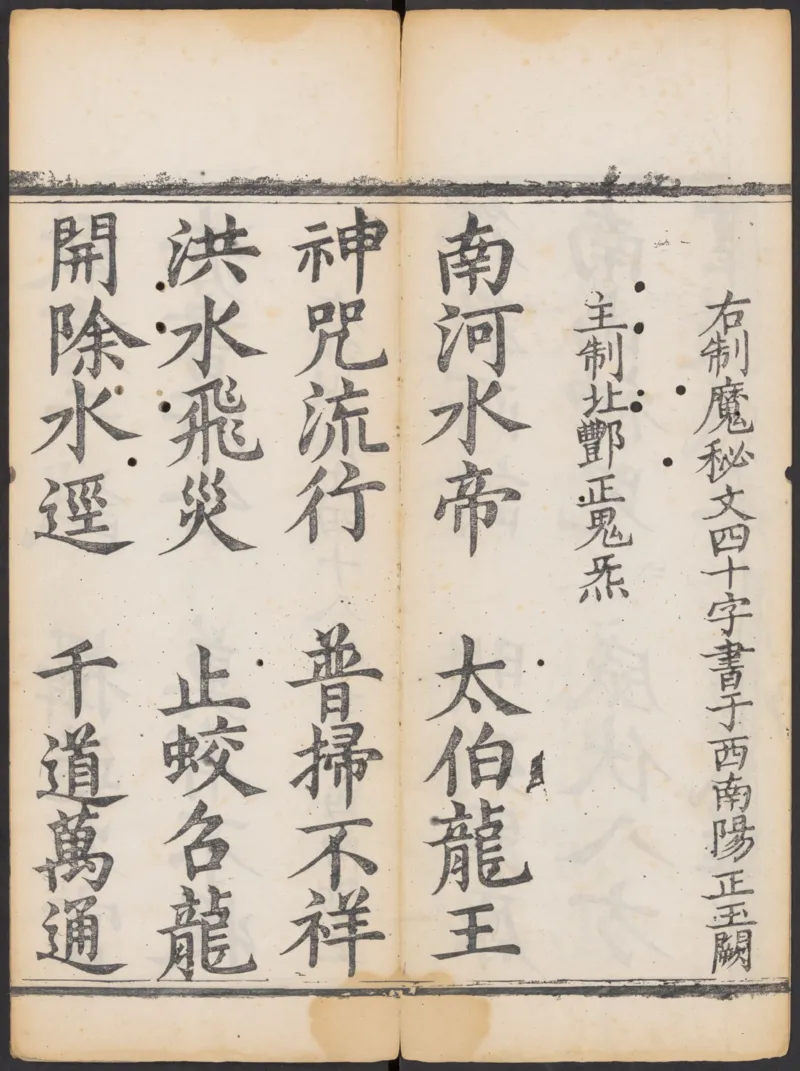 右制魔秘文四十字書于西南陽正玉闕
主制北酆正鬼炁
南河水帝　太伯龍王
神咒流行　普掃不祥
洪水飛災　止蛟召龍
開除水逕　千道萬通